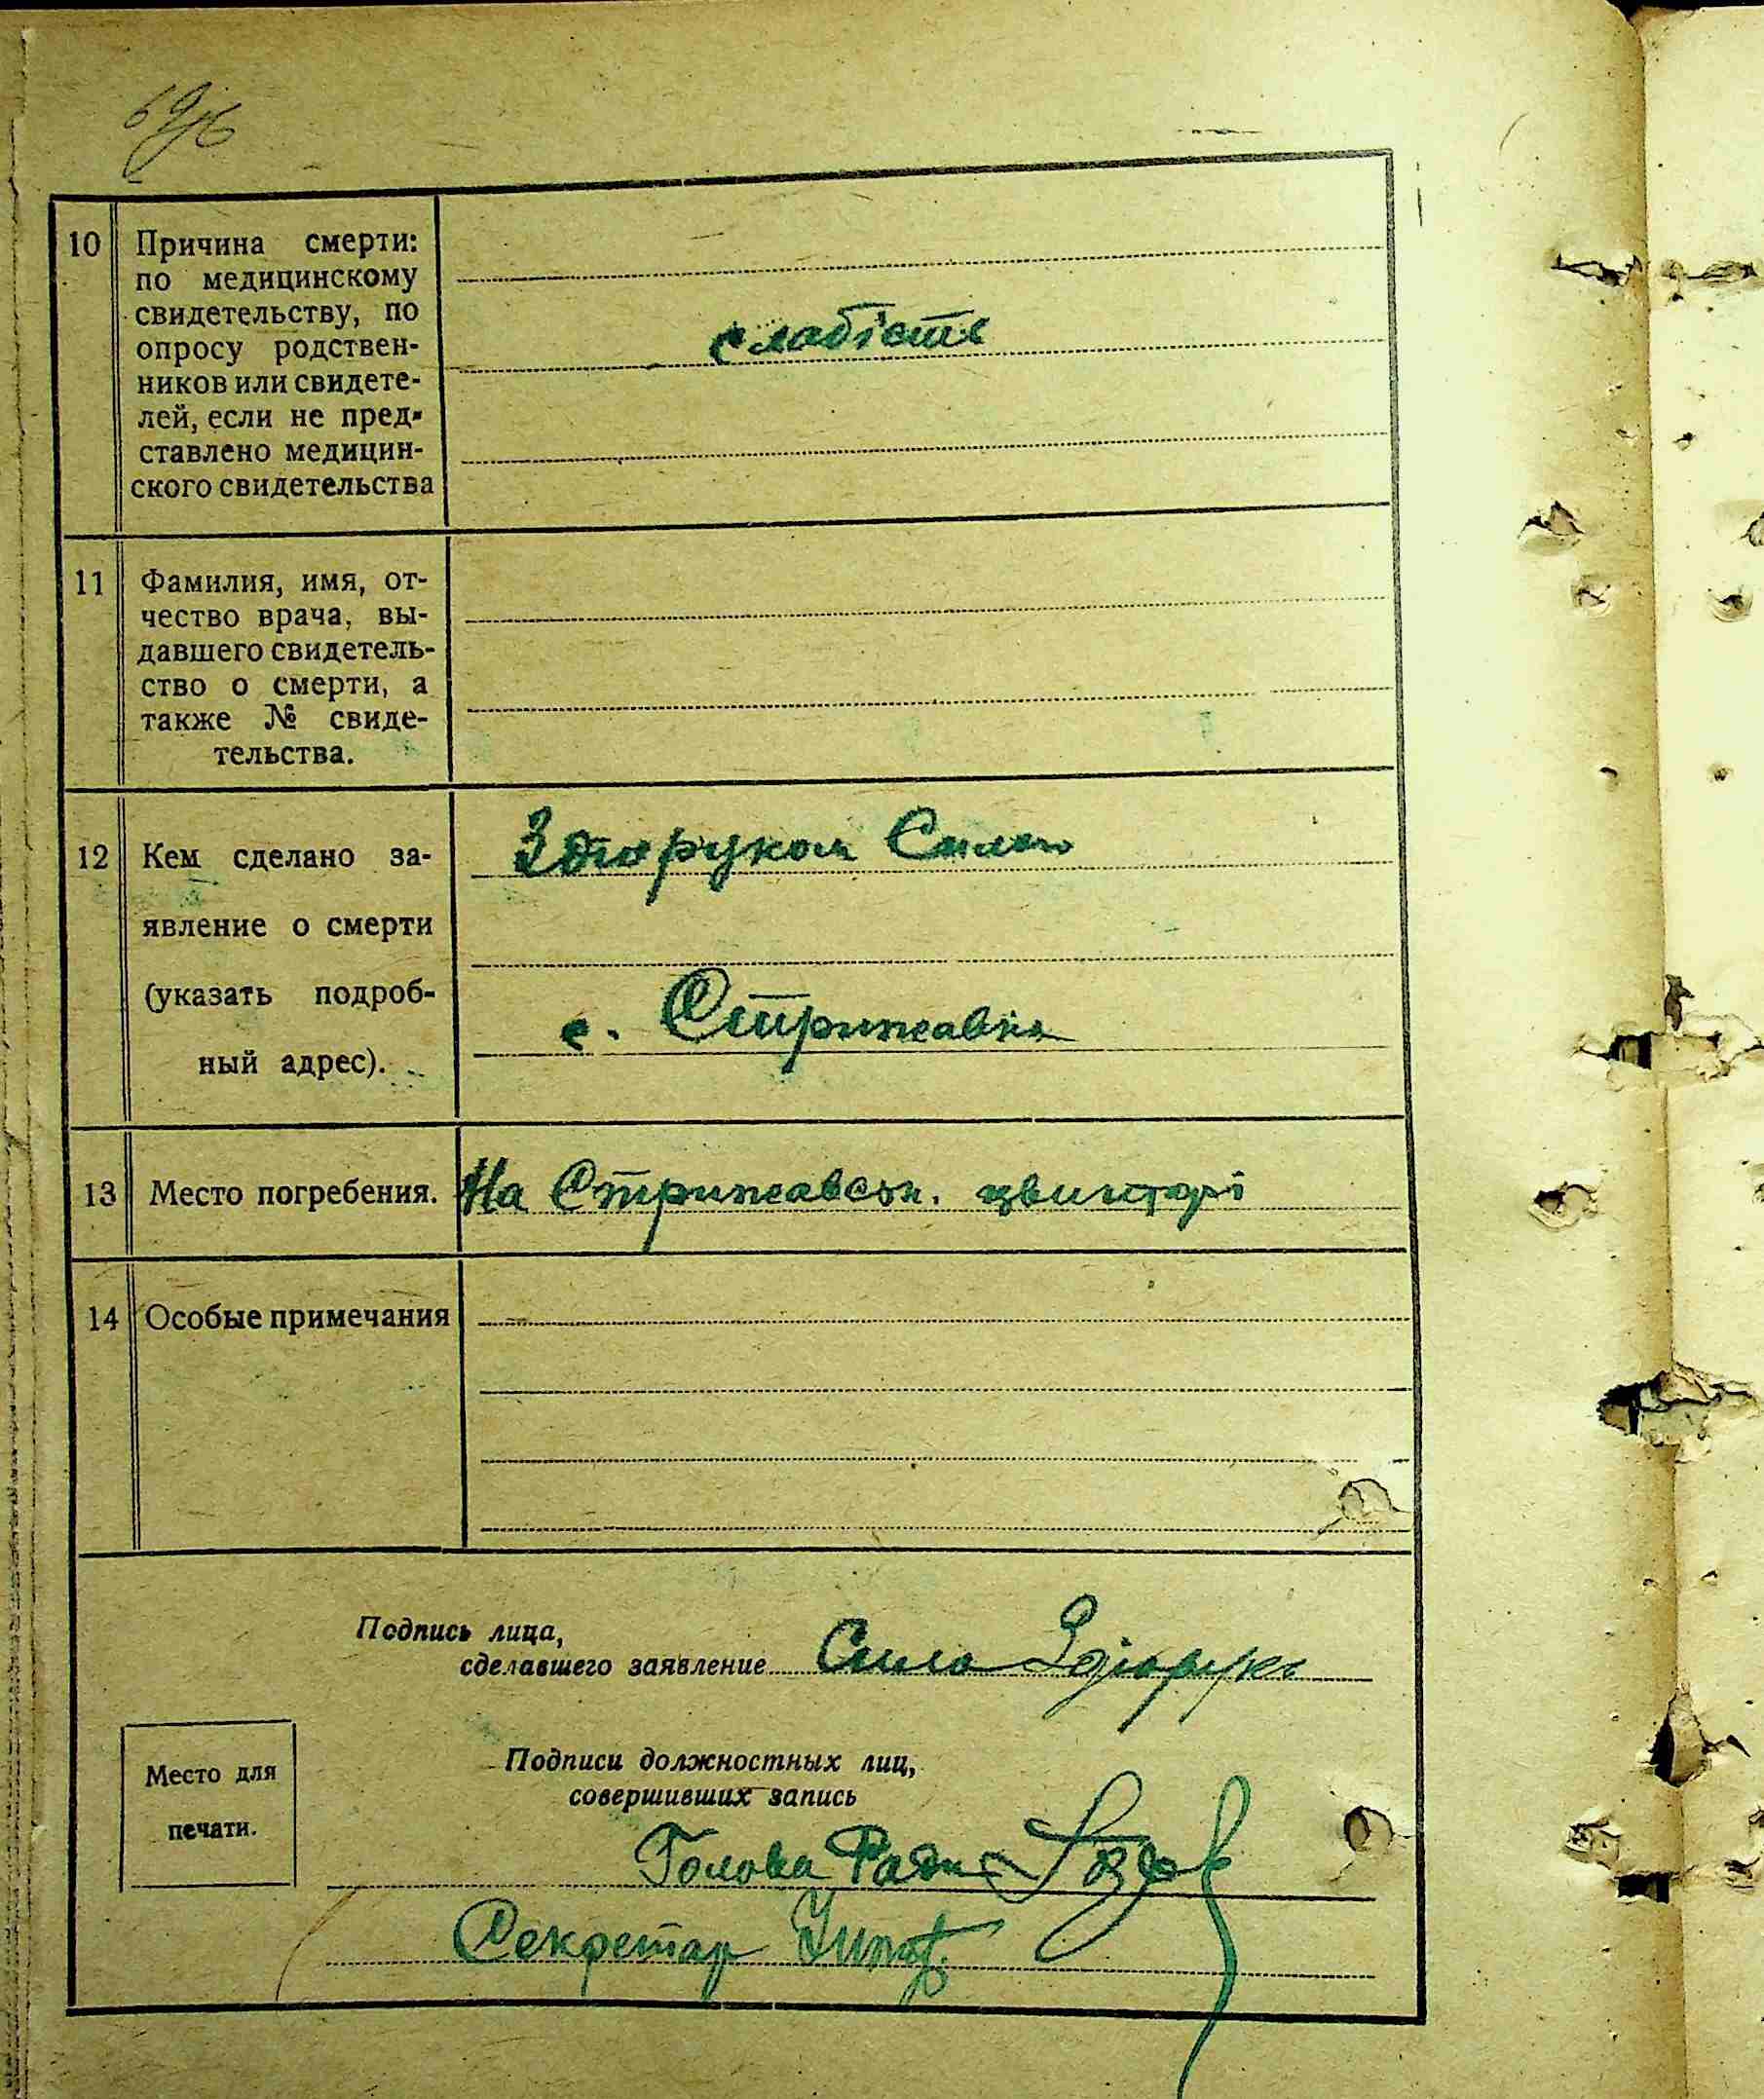 10 Причина смерти:
по медицинскому
свидетельству, по
опросу родствен-
ников или свидете-
лей, если не пред-
ставлено медицин-
ского свидетельства
слабість
11 Фамилия, имя, от-
чество врача, вы-
давшего свидетель-
ство о смерти, а
также № свиде-
тельства.
12 Кем сделано за-
явление о смерти
(указать подроб-
ный адрес).
Здіоруком Силою
с. Стрижавка
13 Место погребения. На Стрижавськ. цвинтарі
14 Особые примечания
Подпись лица,
сделавшего заявление Сила Здіорук
Место для
печати.
Подписи должностных лиц,
совершивших запись
Голова Ради
Секретар